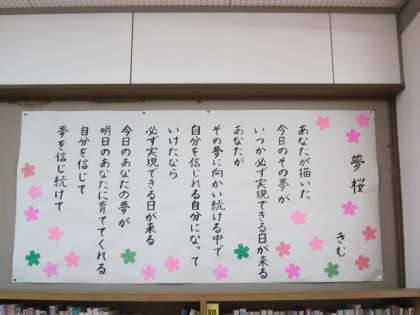 夢桜
きむ
あなたが描いた
今日のその夢が
いつか必ず実現できる日が来る
あなたが
その夢に向かい続ける中で
自分を信じれる自分になって
いけたなら
必ず実現できる日が来る
今日のあなたの夢が
明日のあなたに育ててくれる
自分を信じて
夢を信じ続けて